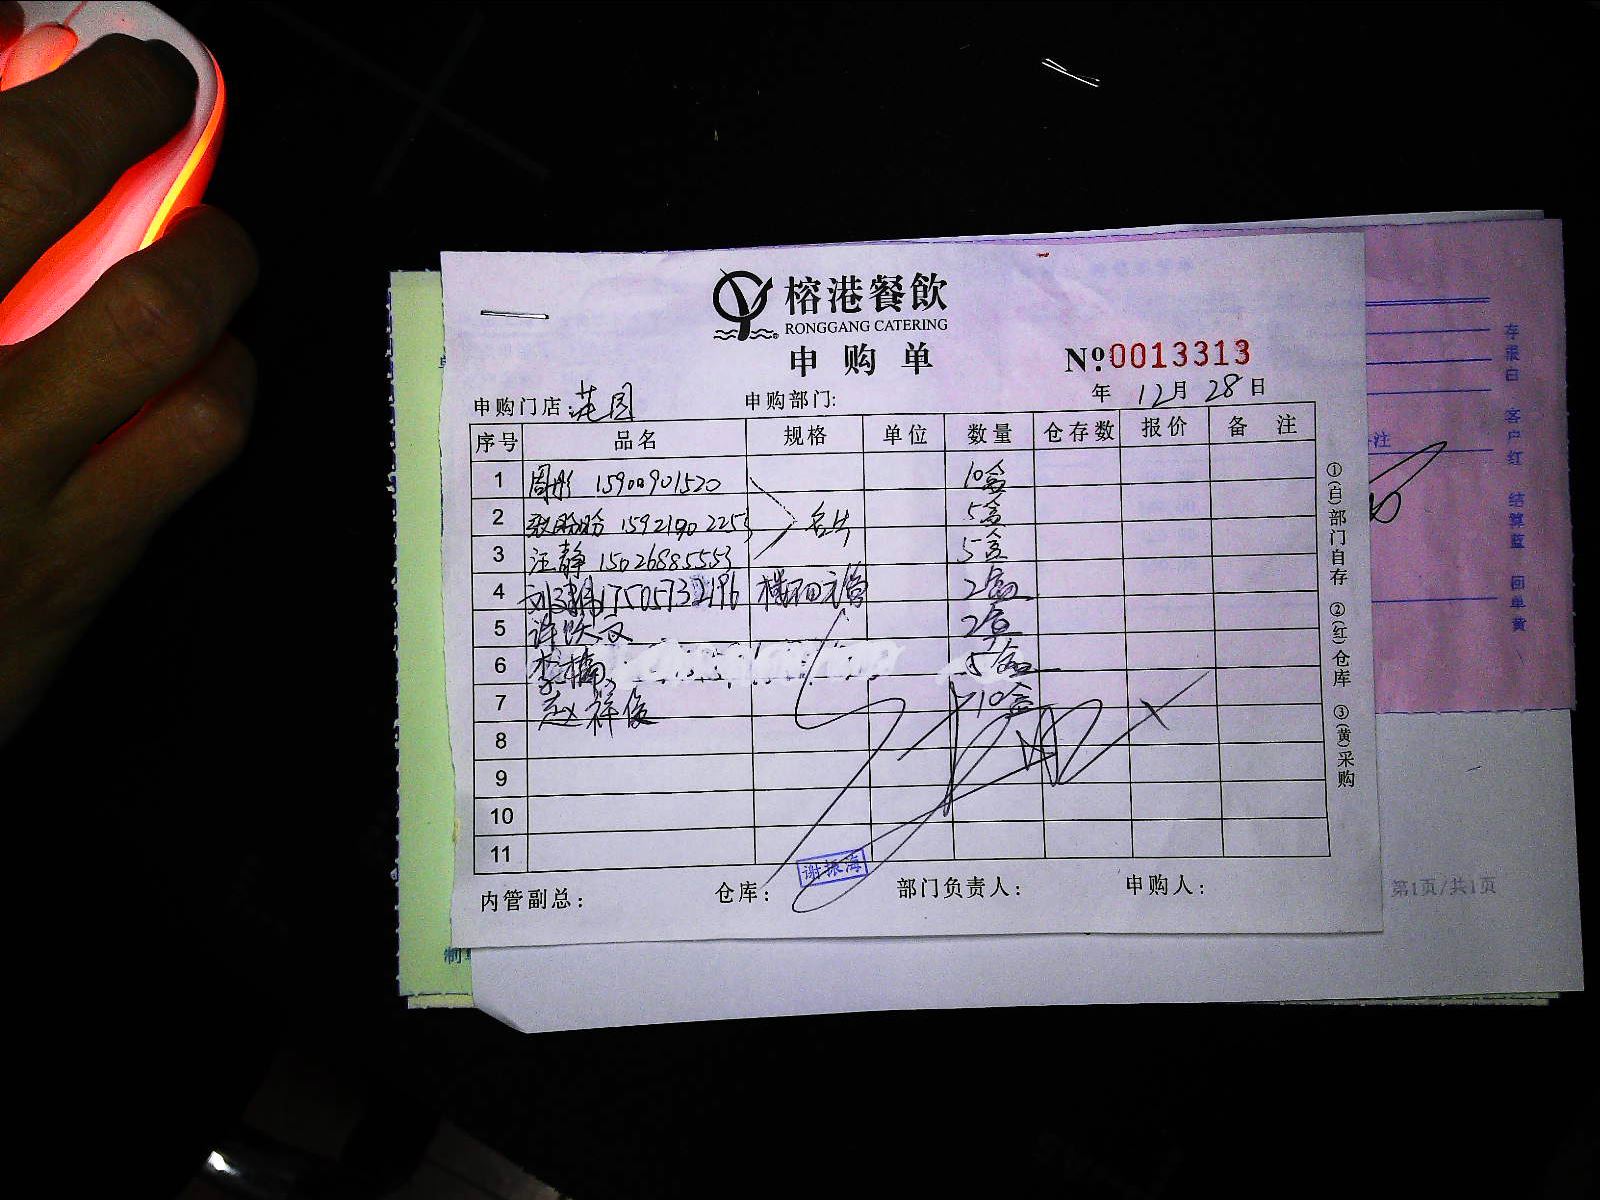 榕港餐飲
RONGGANG CATERING
申购单
№0013313
申购门店:花园 申购部门: 年 12月 28日
序号 品名 规格 单位 数量 仓存数 报价 备 注
1 周彤 15900901520 10盒
2 张盼盼 15921902253 名片 5盒
3 汪静 15026885553 5盒
4 17505732196 2盒
5 许跃文 2盒
6 李楠 5盒
7 赵祥俊 10盒
8
9
10
11
内管副总: 仓库: 谢振海 部门负责人: 申购人:
①(白)部门自存 ②(红)仓库 ③(黄)采购
注
客户红 结算蓝 回单黄
第1页/共1页
制